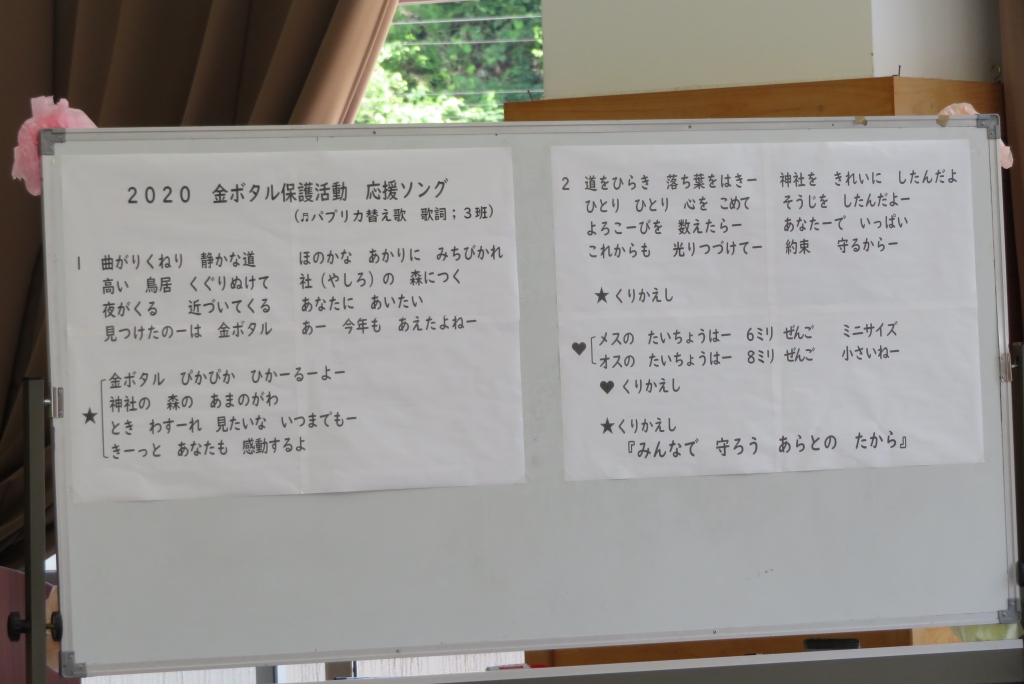 2020 金ボタル保護活動 応援ソング
(♫パプリカ替え歌 歌詞；3班)
1 曲がりくねり 静かな道 ほのかな あかりに みちびかれ
高い 鳥居 くぐりぬけて 社(やしろ)の 森につく
夜がくる 近づいてくる あなたに あいたい
見つけたのーは 金ボタル あー 今年も あえたよねー
★ 金ボタル ぴかぴか ひかーるーよー
神社の 森の あまのがわ
とき わすーれ 見たいな いつまでもー
きーっと あなたも 感動するよ
2 道をひらき 落ち葉をはきー 神社を きれいに したんだよ
ひとり ひとり 心を こめて そうじを したんだよー
よろこーびを 数えたらー あなたーで いっぱい
これからも 光りつづけてー 約束 守るからー
★くりかえし
♥ メスの たいちょうはー 6ミリ ぜんご ミニサイズ
オスの たいちょうはー 8ミリ ぜんご 小さいねー
♥ くりかえし
★くりかえし
『みんなで 守ろう あらとの たから』